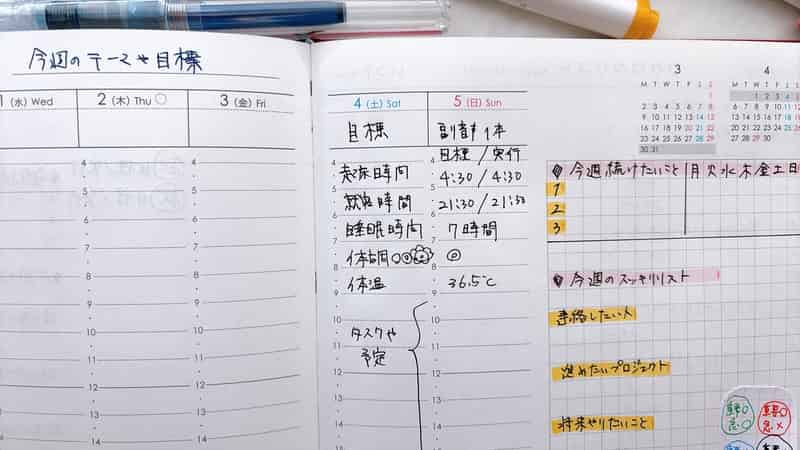 今週のテーマや目標
1 (水) Wed
2 (木) Thu
3 (金) Fri
4
5
6
7
8
9
10
11
12
13
14
4 (土) Sat
5 (日) Sun
目標
目標/実行
起床時間
4:30/4:30
就寝時間
21:30/21:30
睡眠時間
7時間
体調○◎
◎
体温
36.5℃
タスクや
予定
4
5
6
7
8
9
10
11
12
13
3
M T W T F S S
1
2 3 4 5 6 7 8
9 10 11 12 13 14 15
16 17 18 19 20 21 22
23 24 25 26 27 28 29
30 31
4
今週続けたいこと
月火水木金土日
1
2
3
今週のスッキリリスト
連絡したい人
進めたいプロジェクト
将来やりたいこと
重要○
急○
重要○
急×